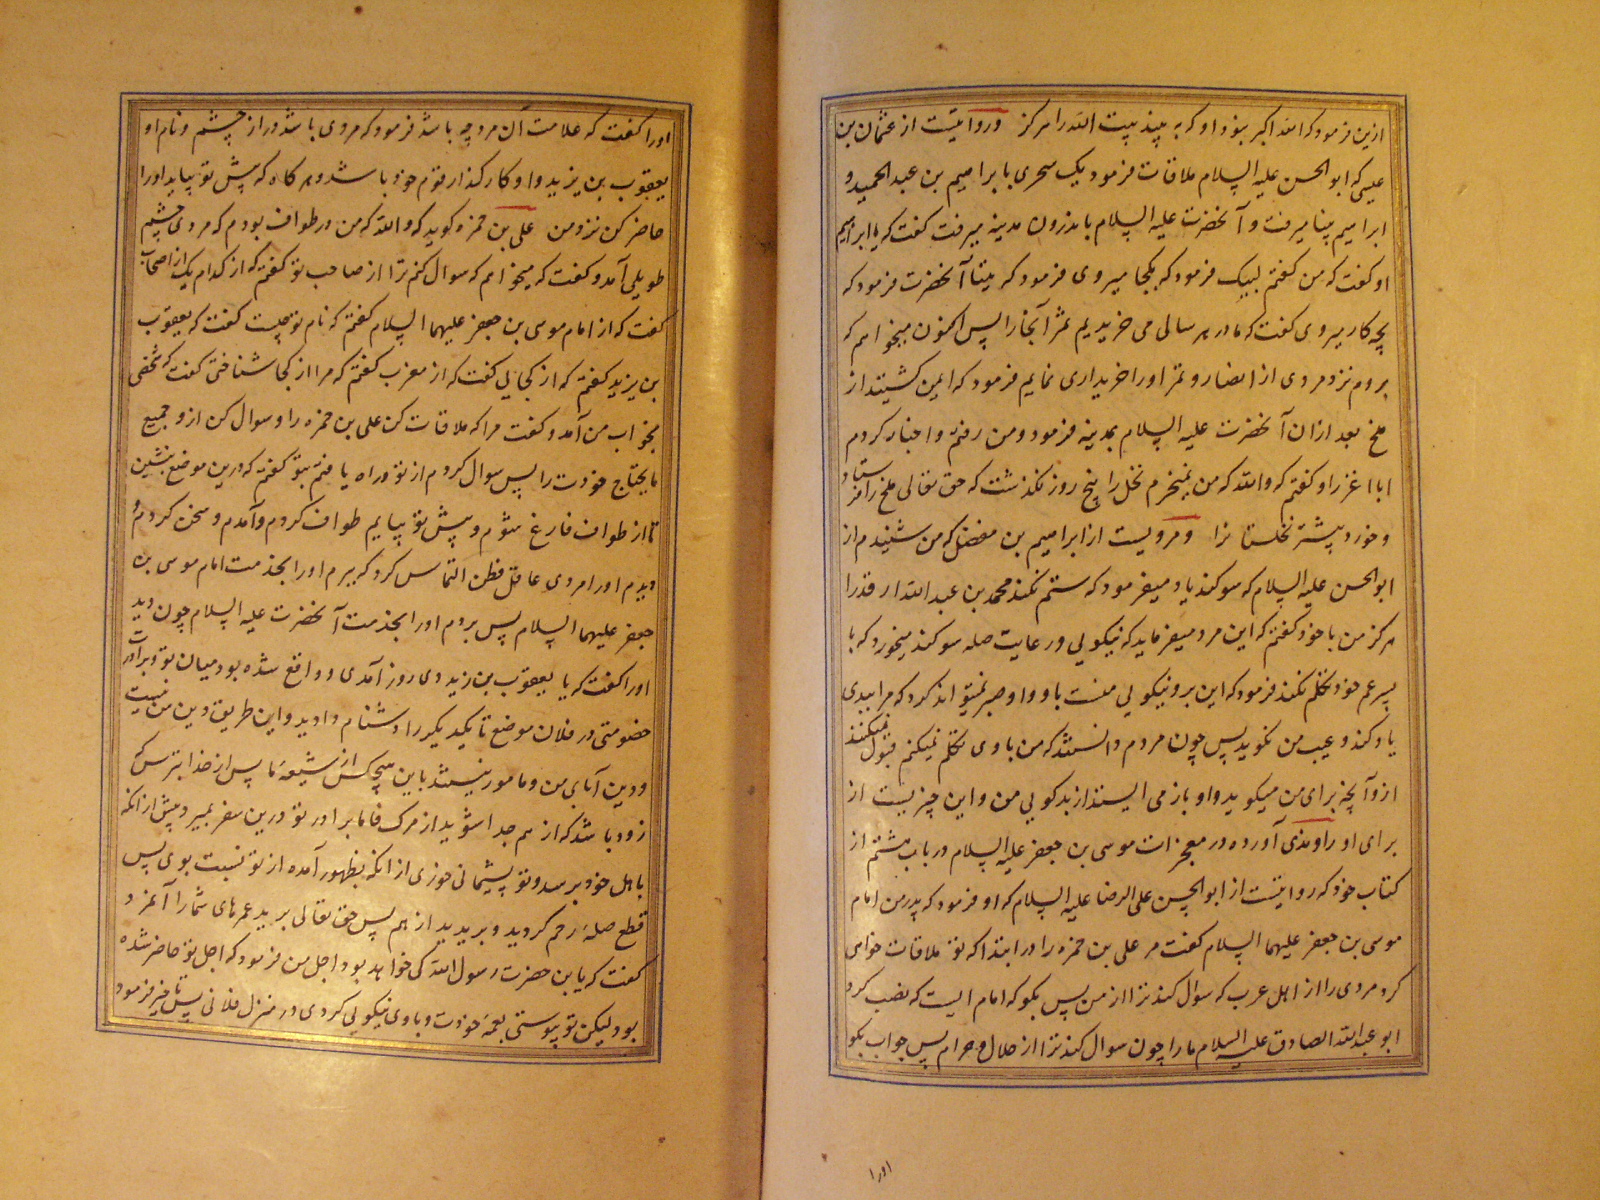 ازین فرمود که الله اکبر نبود او که به بیند بیت الله را هرگز و روایتست از عثمان بن
عیسی که ابو الحسن علیه السلام ملاقات فرمود یک سحری با ابراهیم بن عبد الحمید و
ابراهیم بقبا میرفت و آنحضرت علیه السلام باندرون مدینه میرفت گفت که یا ابراهیم
او گفت که من گفتم لبیک فرمود که بکجا میروی فرمود که بقبا آنحضرت فرمود که
بچه کار میروی گفت که ما در هر سالی می خریدیم ثمر آنجا را پس اکنون میخواهم که
بروم نزد مردی از انصار و ثمر او را خریداری نمایم فرمود که ایمن گشتید از
ملخ بعد از ان آنحضرت علیه السلام بمدینه فرمود و من رفتم و اخبار کردم
ابا اغر را و گفتم که والله که من نمیخرم نخل را پنج روز نگذشت که حق تعالی ملخ را فرستاد
و خورد بیشتر نخلستانرا و مرویست از ابراهیم بن مفضل که من شنیدم از
ابو الحسن علیه السلام که سوگند یاد میفرمود که ستم نکند محمد بن عبد الله ارقدرا
هرگز من با خود گفتم که این مرد میفرماید که نیکویی و رعایت صله سوگند میخورد که با
پسر عم خود تکلم نکند فرمود که این بر و نیکویی منست باو و او صبر نمیتواند کرد که مرا ببدی
یاد کند و عیب من نگوید پس چون مردم دانستند که من با وی تکلم نمیکنم قبول نمیکنند
ازو آنچه برای من میگوید و او باز می ایستد از بدگویی من و این چیزیست از
برای او راوندی آورده در معجزات موسی بن جعفر علیه السلام در باب هشتم از
کتاب خود که روایتست از ابو الحسن علی الرضا علیه السلام که او فرمود که پدر من امام
موسی بن جعفر علیهما السلام گفت مر علی بن حمزه را در ابتدا که تو ملاقات خواهی
کرد مردی را از اهل عرب که سوال کند ترا از من پس بگو که امام ایست که نصب کرد
ابو عبد الله الصادق علیه السلام ما را چون سوال کند ترا از حلال و حرام پس جواب بگو
اورا
اورا گفت که علامت آن مرد چه باشد فرمود که مردی باشد دراز چشم و نام او
یعقوب بن یزید و او کارگذار قوم خود باشد و هر گاه که پیش تو بیاید اورا
حاضر کن نزد من علی بن حمزه گوید که والله که من در طواف بودم که مردی چشم
طویلی آمد و گفت که میخواهم که سوال کنم ترا از صاحب تو گفتم که از کدام یک از اصحاب
گفت که از امام موسی بن جعفر علیهما السلام گفتم که نام تو چیست گفت که یعقوب
بن یزید گفتم که از کجایی گفت که از مغرب گفتم که مرا از کجا شناختی گفت که شخصی
بخواب من آمد و گفت مرا که ملاقات کن علی بن حمزه را و سوال کن ازو جمیع
ما یحتاج خودت را پس سوال کردم از تو و راه یافتم بتو گفتم که درین موضع بنشین
تا از طواف فارغ شوم و پیش تو بیایم طواف کردم و آمدم و سخن کردم و
دیدم او را مردی عاقل فطن التماس کرد که ببرم او را بخدمت امام موسی بن
جعفر علیهما السلام پس بردم او را بخدمت آنحضرت علیه السلام چون دید
اورا گفت که یا یعقوب بن زید دی روز آمدی و واقع شده بود میان تو و برادرت
خصومتی در فلان موضع تا یکدیگر را دشنام دادید و این طریق دین من نیست
و دین آبای من و مامور نیستند باین هیچکس از شیعهٔ ما پس از خدا بترس که
زود باشد که از هم جدا شوید از مرگ فاما برادر تو درین سفر بمیرد پیش از انکه
باهل خود برسد و تو پشیمانی خوری از انکه بظهور آمده از تو نسبت بوی پس
قطع صلهٔ رحم کردید و بریدید از هم پس حق تعالی برید عمرهای شما را آنمرد
گفت که یا بن حضرت رسول الله کی خواهد بود اجل من فرمود که اجل تو حاضر شده
بود لیکن تو پیوستی بعمهٔ خودت و با وی نیکویی کردی در منزل فلانی پس تاخیر فرمود